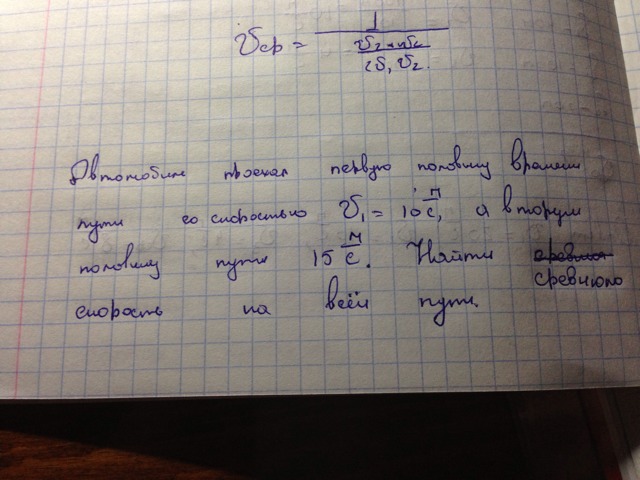 υср = 1 / ((υ2 + υ1) / (2υ1υ2))
Автомобиль проехал первую половину времени
пути со скоростью υ1 = 10 м/с, а вторую
половину пути 15 м/с. Найти
среднюю
скорость на всём пути.